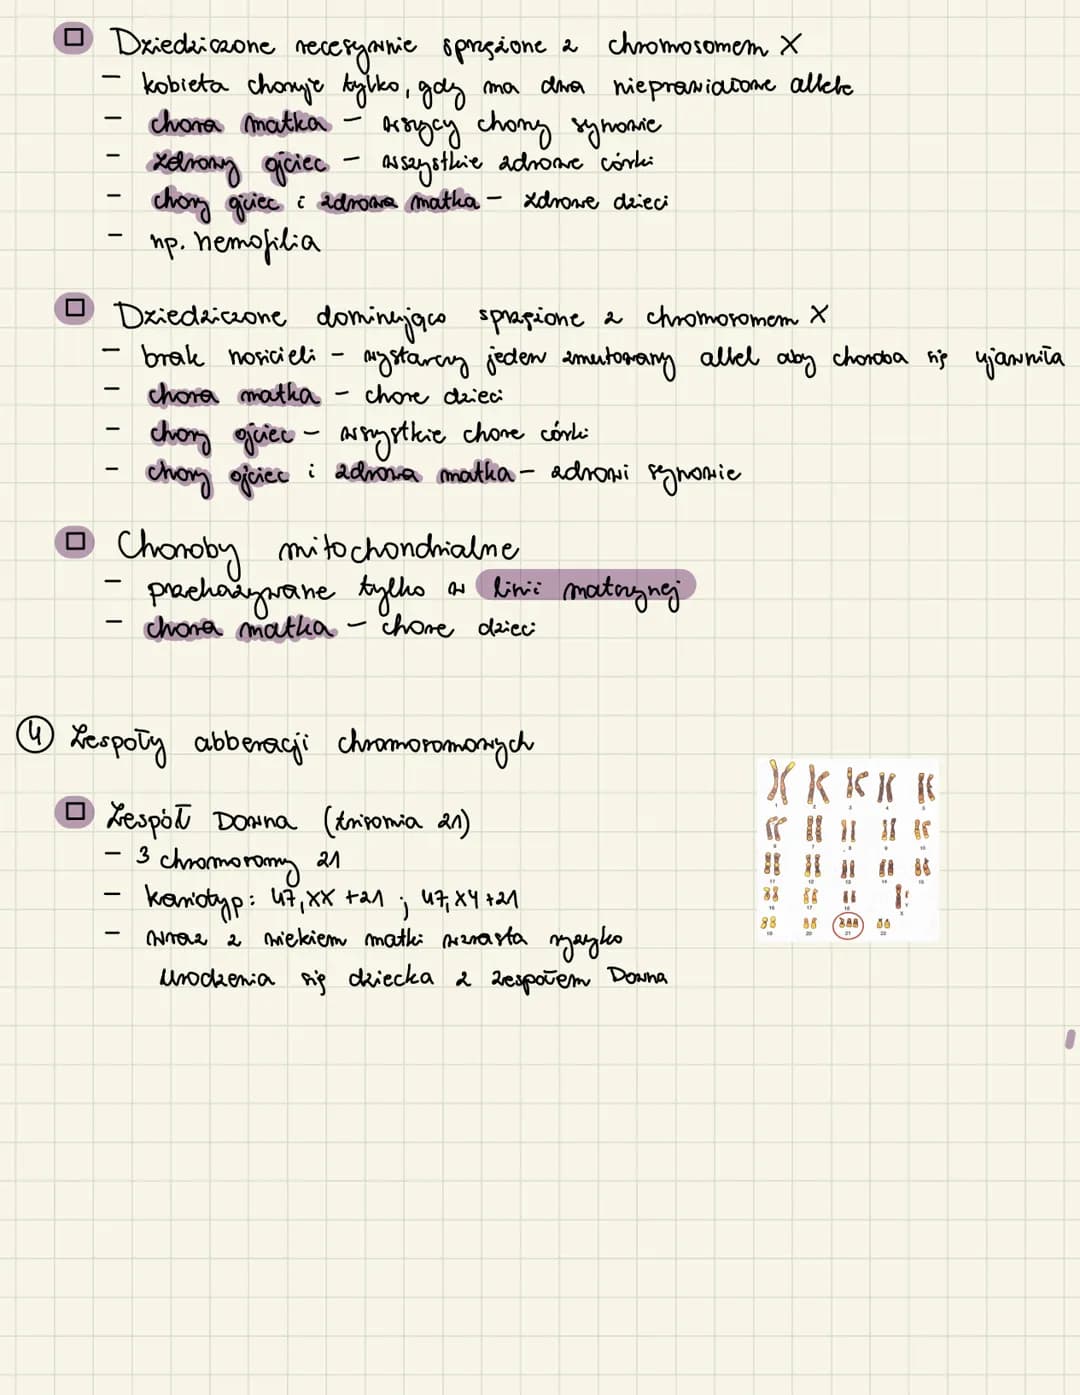 Dziedziczone recesywnie sprzężone z chromosomem X
- kobieta choruje tylko, gdy ma dwa nieprawidłowe allele
- chora matka - wszyscy chorzy synowie
- zdrowy ojciec - wszystkie zdrowe córki
- chory ojciec i zdrowa matka - zdrowe dzieci
- np. hemofilia
Dziedziczone dominująco sprzężone z chromosomem X
- brak nosicieli - wystarczy jeden zmutowany allel aby choroba się ujawniła
- chora matka - chore dzieci
- chory ojciec - wszystkie chore córki
- chory ojciec i zdrowa matka - zdrowi synowie
Choroby mitochondrialne
- przekazywane tylko w linii matczynej
- chora matka - chore dzieci
4 Zespoły abberacji chromosomowych
Zespół Downa (trisomia 21)
- 3 chromosomy 21
- kariotyp: 47, XX +21 ; 47, XY +21
- wraz z wiekiem matki wzrasta ryzyko
urodzenia się dziecka z zespołem Downa
1 2 3 4 5
6 7 8 9 10
11 12 13 14 15
16 17 18 X Y
19 20 21 22